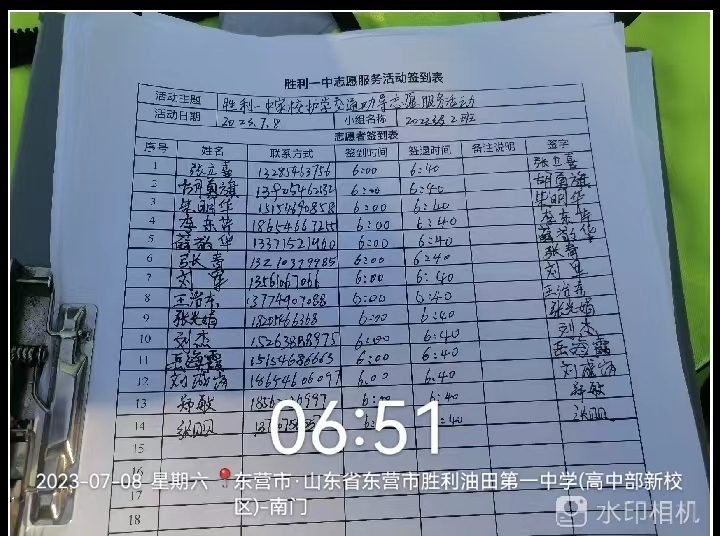 胜利一中志愿服务活动签到表
活动主题 胜利一中学校初学交通劝导志愿服务活动
活动日期 2023.7.8 小组名称 2022级2班
志愿者签到表
序号 姓名 联系方式 签到时间 签退时间 备注说明 签字
1 张立喜 13285463756 6:00 6:40 张立喜
2 胡勇旗 6:00 6:40 胡勇旗
3 毕明华 15154690858 6:00 6:40 毕明华
4 李东苹 18654667255 6:00 6:40 李东苹
5 薛敬华 13371521460 6:00 6:40 薛敬华
6 张寿 13210379985 6:00 6:40 张寿
7 刘军 6:00 6:40 刘军
8 王洛东 13774907088 6:00 6:40 王洛东
9 张光娟 18205466368 6:00 6:40 张光娟
10 刘杰 15263888975 6:00 6:40 刘杰
11 岳海霞 15154686663 6:00 6:40 岳海霞
12 刘 18654606097 6:00 6:40 刘
13 郑敏 郑敏
14 张贝贝 张贝
15
16
17
18
06:51
2023-07-08 星期六 东营市·山东省东营市胜利油田第一中学(高中部新校
区)-南门
水印相机